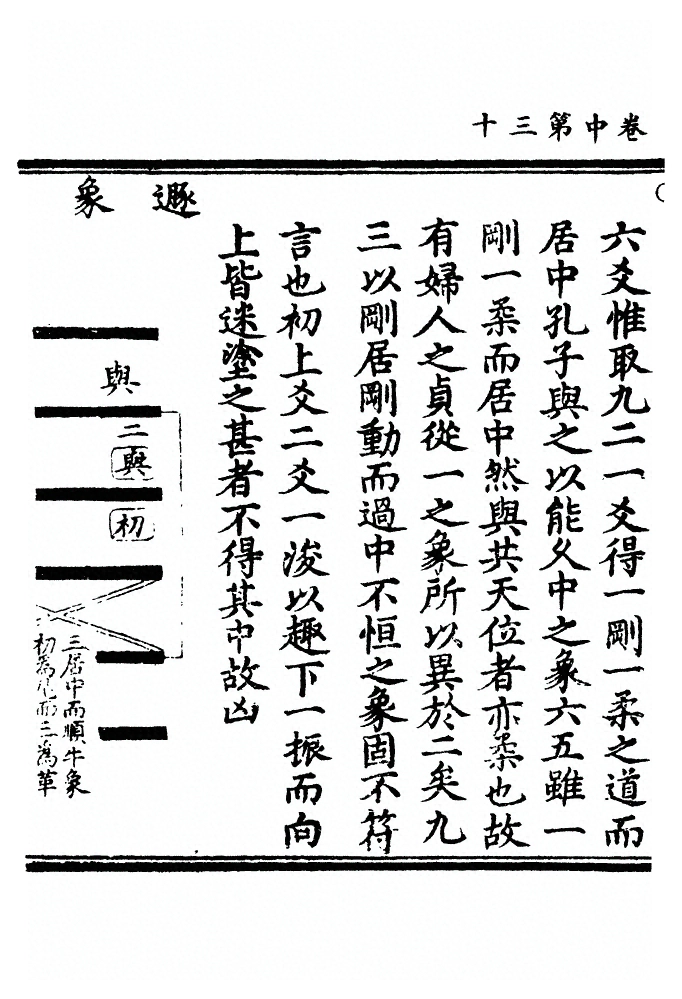 卷中第三十
六爻惟取九二一爻得一剛一柔之道而
居中孔子與之以能久中之象六五雖一
剛一柔而居中然與共天位者亦柔也故
有婦人之貞從一之象所以異於二矣九
三以剛居剛動而過中不恒之象固不符
言也初上爻二爻一浚以趣下一振而向
上皆迷塗之甚者不得其中故凶
遯象
與
二與
初
三居中而順牛象
初為尾而三為革